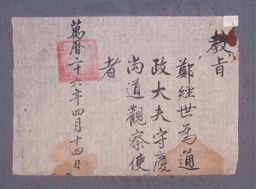 教旨
鄭經世為通
政大夫守慶
尚道觀察使
者
萬曆二十六年四月十四日